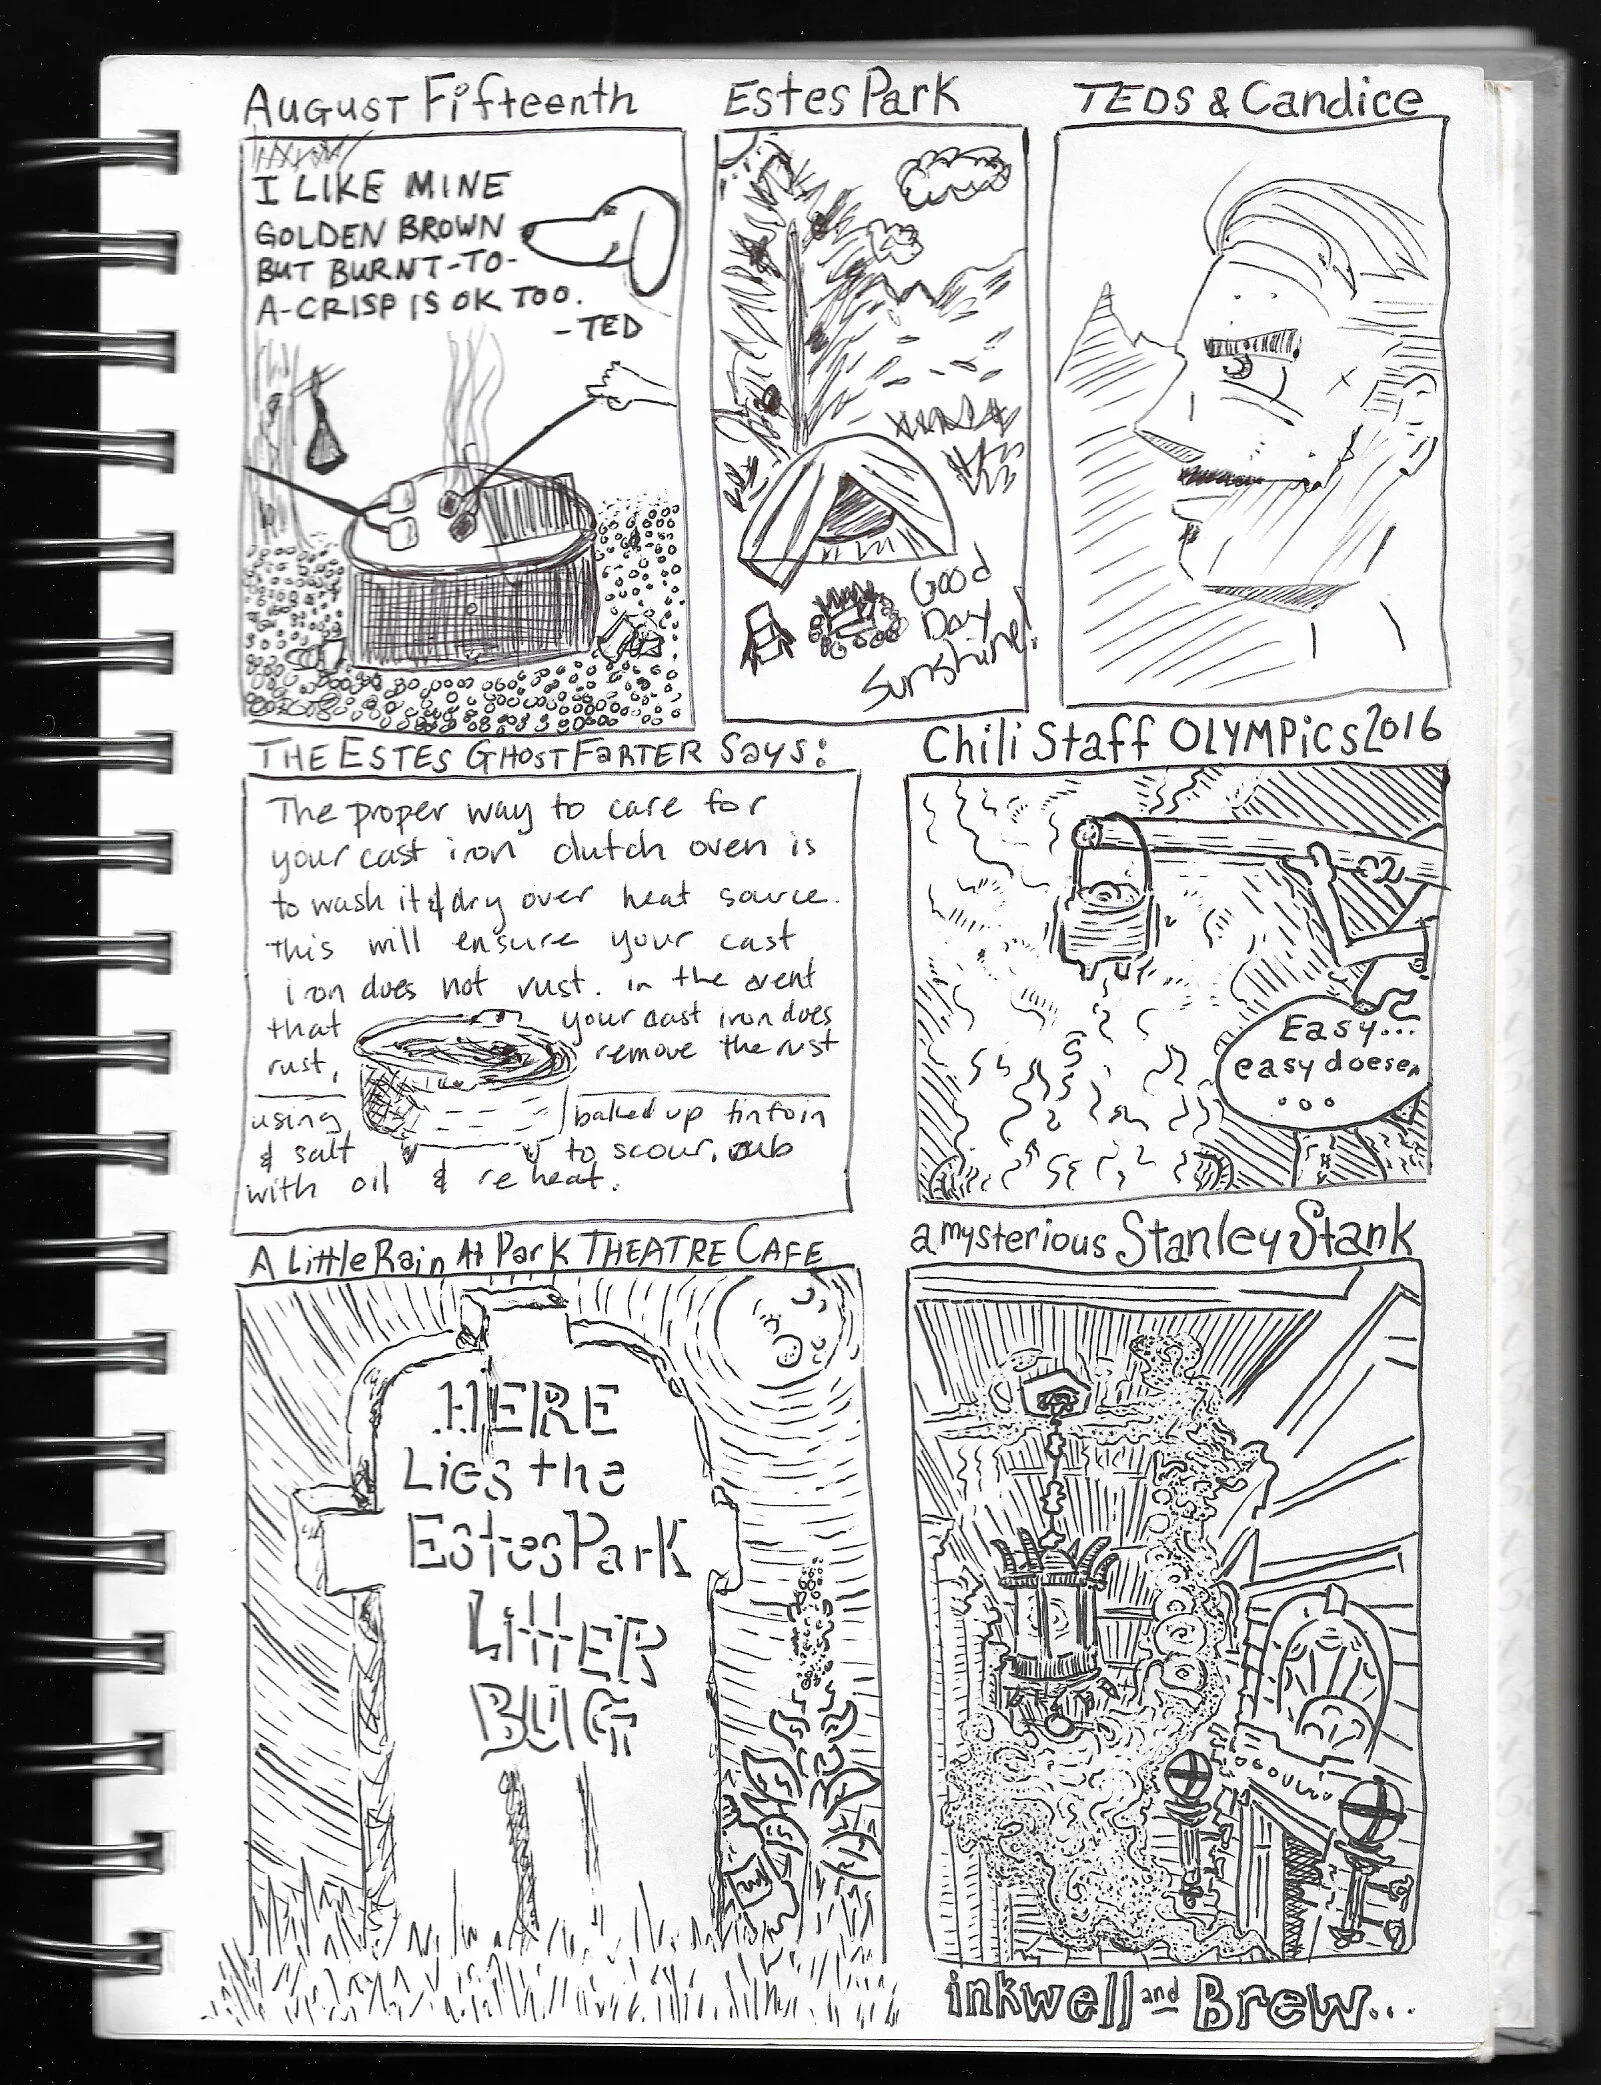 August Fifteenth
I LIKE MINE
GOLDEN BROWN
BUT BURNT-TO-
A-CRISP IS OK TOO.
-TED
Estes Park
Good
Day
Sunshine!
TEDS & Candice
THE ESTES GHOST FARTER Says:
The proper way to care for
your cast iron dutch oven is
to wash it & dry over heat source.
this will ensure your cast
iron does not rust. in the event
that your cast iron does
rust, remove the rust
using baked up tinfoin
& salt to scour. rub
with oil & reheat.
Chili Staff OLYMPiCS 2016
Easy...
easy doese
...
A Little Rain At Park THEATRE CAFE
HERE
Lies the
Estes Park
LittER
BUG
a mysterious Stanley Stank
inkwell and Brew...